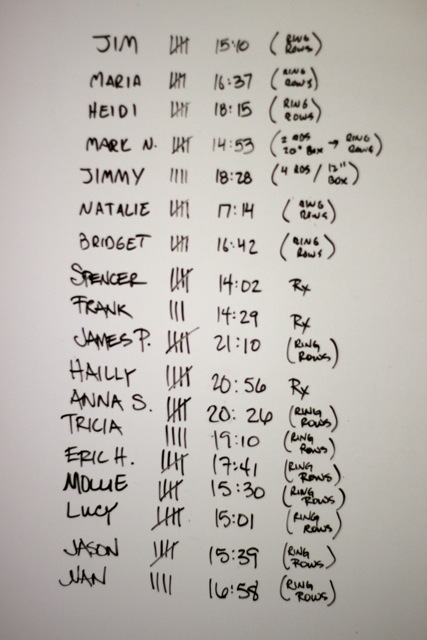 JIM 𝍸 15:10 (RING ROWS)
MARIA 𝍸 16:37 (RING ROWS)
HEIDI 𝍸 18:15 (RING ROWS)
MARK N. 𝍸 14:53 (2 RDS 20" BOX → RING ROWS)
JIMMY |||| 18:28 (4 RDS / 12" BOX)
NATALIE 𝍸 17:14 (RING ROWS)
BRIDGET 𝍸 16:42 (RING ROWS)
SPENCER 𝍸 14:02 Rx
FRANK ||| 14:29 Rx
JAMES P. 𝍸 21:10 (RING ROWS)
HAILLY 𝍸 20:56 Rx
ANNA S. 𝍸 20:26 (RING ROWS)
TRICIA |||| 19:10 (RING ROWS)
ERIC H. 𝍸 17:41 (RING ROWS)
MOLLIE 𝍸 15:30 (RING ROWS)
LUCY 𝍸 15:01 (RING ROWS)
JASON 𝍸 15:39 (RING ROWS)
NAN |||| 16:58 (RING ROWS)